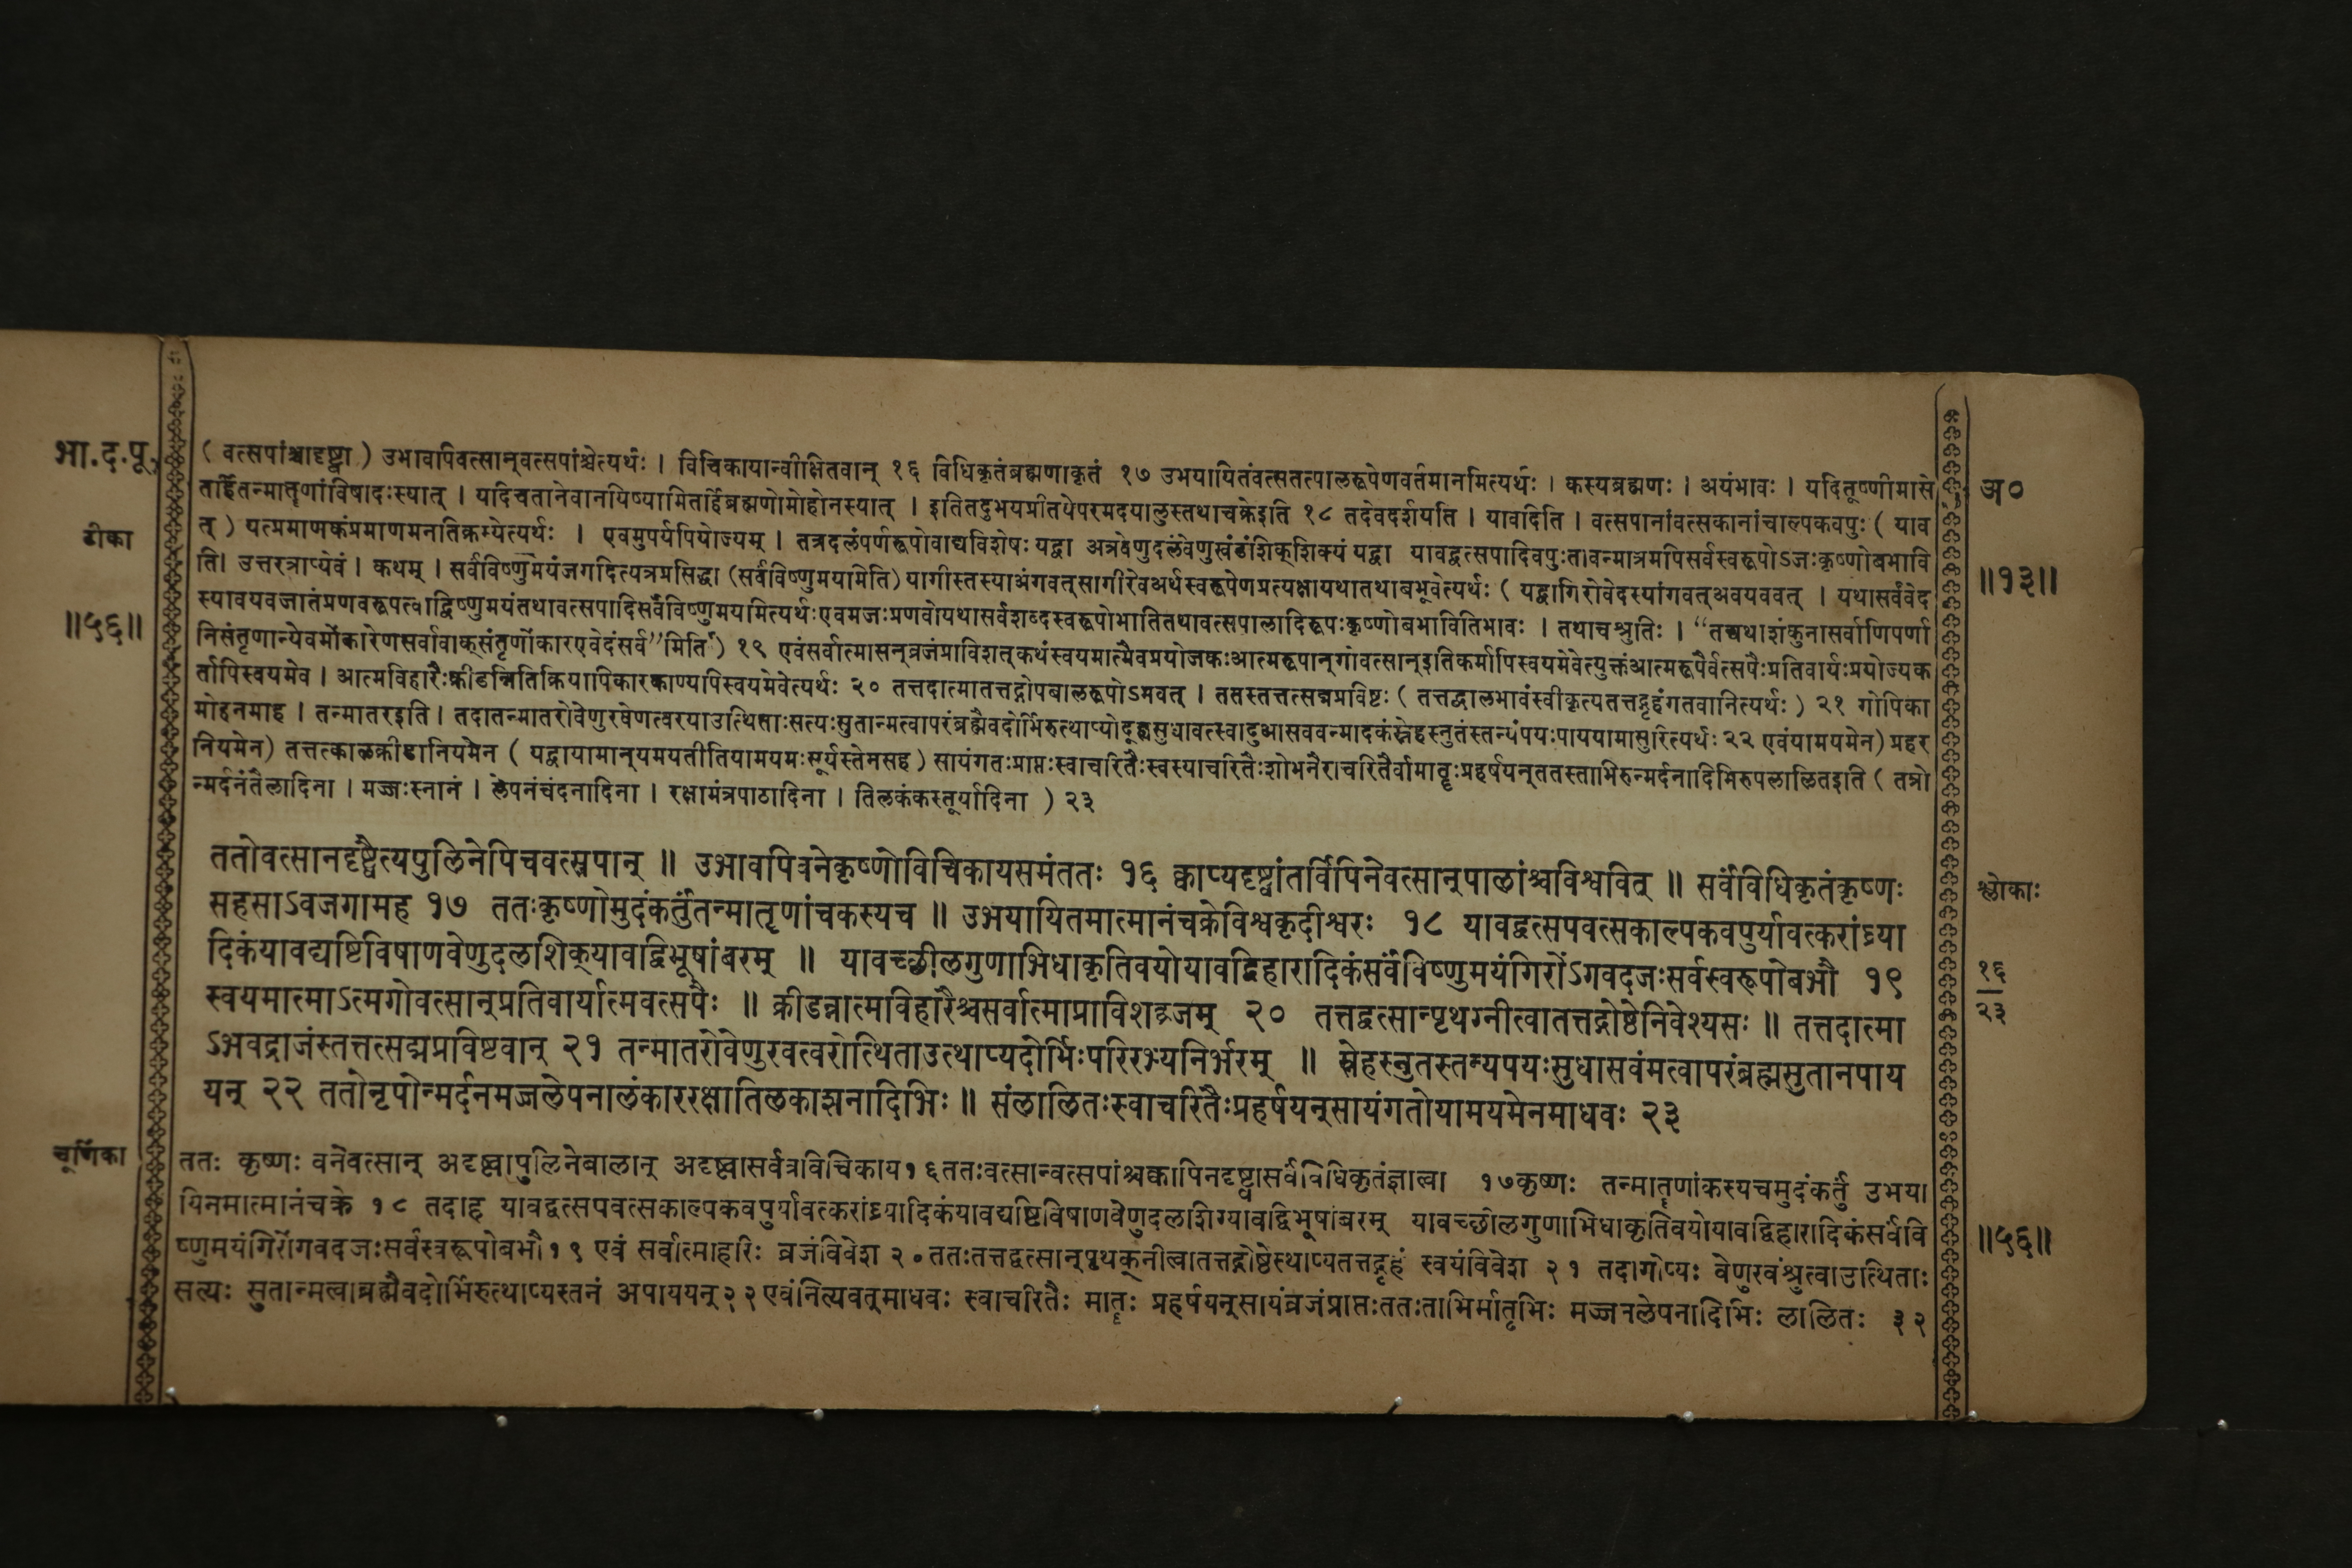 भा.द.पू.
टीका
॥५६॥
(वत्सपांश्चादृष्ट्वा) उभावपिवत्सान्वत्सपांश्चेत्यर्थः । विचिकायान्वीक्षितवान् १६ विधिकृतंब्रह्मणाकृतं १७ उभयायितंवत्सतत्पालरूपेणवर्तमानमित्यर्थः । कस्यब्रह्मणः । अयंभावः । यदितूष्णीमासे
तर्हितन्मातॄणांविषादःस्यात् । यदिचतानेवानयिष्यामितर्हिब्रह्मणोमोहोनस्यात् । इतितदुभयप्रीतयेपरमदयालुस्तथाचक्रेइति १८ तदेवदर्शयति । यावदिति । वत्सपानांवत्सकानांचाल्पकवपुः ( याव
त् ) यत्प्रमाणकंप्रमाणमनतिक्रम्येत्यर्थः । एवमुपर्यपियोज्यम् । तत्रदलंपर्णरूपोवाद्यविशेषः यद्वा अत्रवेणुदलंवेणुखंडांशिक्शिक्यं यद्वा यावद्वत्सपादिवपुःतावन्मात्रमपिसर्वस्वरूपोऽजःकृष्णोबभावि
ति। उत्तरत्राप्येवं । कथम् । सर्वंविष्णुमयंजगदित्यत्रप्रसिद्धा (सर्वंविष्णुमयामेति) यागीस्तस्याअंगवत्सागीरेवअर्थस्वरूपेणप्रत्यक्षायथातथाबभूवेत्यर्थः ( यद्वागिरोवेदस्यांगवत्अवयववत् । यथासर्वंवेद
स्यावयवजातंप्रणवरूपत्वाद्विष्णुमयंतथावत्सपादिसर्वंविष्णुमयमित्यर्थःएवमजःप्रणवोयथासर्वशब्दस्वरूपोभातितथावत्सपालादिरूपःकृष्णोबभावितिभावः । तथाचश्रुतिः । “तद्यथाशंकुनासर्वाणिपर्णा
निसंतृणान्येवमोंकारेणसर्वावाक्संतृणोंकारएवेदंसर्व”मिति ) १९ एवंसर्वात्मासन्व्रजंप्राविशत्कथंस्वयमात्मैवप्रयोजकःआत्मरूपान्गोवत्सान्इतिकर्मापिस्वयमेवेत्युक्तंआत्मरूपैर्वत्सपैःप्रतिवार्यःप्रयोज्यक
र्तापिस्वयमेव । आत्मविहारैःक्रीडन्नितिक्रियापिकारकाण्यपिस्वयमेवेत्यर्थः २० तत्तदात्मातत्तद्गोपबालरूपोऽभवत् । ततस्तत्तत्सद्मप्रविष्टः ( तत्तद्बालभावंस्वीकृत्यतत्तद्गृहंगतवानित्यर्थः ) २१ गोपिका
मोहनमाह । तन्मातरइति । तदातन्मातरोवेणुरवेणत्वरयाउत्थिताःसत्यःसुतान्मत्वापरंब्रह्मैवदोर्भिरुत्थाप्योदूह्यसुधावत्स्वादुआसववन्मादकंस्नेहस्नुतंस्तन्यंपयःपाययामासुरित्यर्थः २२ एवंयामयमेन) प्रहर
नियमेन) तत्तत्काळक्रीडानियमेन ( यद्वायामान्यमयतीतियामयमःसूर्यस्तेनसह ) सायंगतःप्राप्तःस्वाचरितैःस्वस्याचरितैःशोभनैराचरितैर्वामातॄःप्रहर्षयन्ततस्ताभिरुन्मर्दनादिभिरुपलालितइति ( तत्रो
न्मर्दनंतैलादिना । मज्जःस्नानं । लेपनंचंदनादिना । रक्षामंत्रपाठादिना । तिलकंकस्तूर्यादिना ) २३
अ०
॥१३॥
ततोवत्सानदृष्ट्वैत्यपुलिनेपिचवत्सपान् ॥ उभावपिवनेकृष्णोविचिकायसमंततः १६ क्वाप्यदृष्ट्वांतर्विपिनेवत्सान्पालांश्चविश्ववित् ॥ सर्वंविधिकृतंकृष्णः
सहसाऽवजगामह १७ ततःकृष्णोमुदंकर्तुंतन्मातॄणांचकस्यच ॥ उभयायितमात्मानंचक्रेविश्वकृदीश्वरः १८ यावद्वत्सपवत्सकाल्पकवपुर्यावत्करांघ्र्या
दिकंयावद्यष्टिविषाणवेणुदलशिक्यावद्विभूषांबरम् ॥ यावच्छीलगुणाभिधाकृतिवयोयावद्विहारादिकंसर्वंविष्णुमयंगिरोंऽगवदजःसर्वस्वरूपोबभौ १९
स्वयमात्माऽत्मगोवत्सान्प्रतिवार्यात्मवत्सपैः ॥ क्रीडन्नात्मविहारैश्चसर्वात्माप्राविशद्व्रजम् २० तत्तद्वत्सान्पृथग्नीत्वातत्तद्गोष्ठेनिवेश्यसः ॥ तत्तदात्मा
ऽभवद्राजंस्तत्तत्सद्मप्रविष्टवान् २१ तन्मातरोवेणुरवत्वरोत्थिताउत्थाप्यदोर्भिःपरिरभ्यनिर्भरम् ॥ स्नेहस्नुतस्तन्यपयःसुधासवंमत्वापरंब्रह्मसुतानपाय
यन् २२ ततोनृपोन्मर्दनमज्जलेपनालंकाररक्षातिळकाशनादिभिः ॥ संलालितःस्वाचरितैःप्रहर्षयन्सायंगतोयामयमेनमाधवः २३
श्लोकाः
१६
२३
चूर्णिका
ततः कृष्णः वनेवत्सान् अदृष्ट्वापुलिनेबालान् अदृष्ट्वासर्वत्रविचिकाय१६ततःवत्सान्वत्सपांश्चक्वापिनदृष्ट्वासर्वंविधिकृतंज्ञात्वा १७कृष्णः तन्मातॄणांकस्यचमुदंकर्तुं उभया
यिनमात्मानंचक्रे १८ तदाह यावद्वत्सपवत्सकाल्पकवपुर्यावत्करांघ्र्यादिकंयावद्यष्टिविषाणवेणुदलशिग्यावद्विभूषांबरम् यावच्छीलगुणाभिधाकृतिवयोयावद्विहारादिकंसर्वंवि
ष्णुमयंगिरोंगवदजःसर्वस्वरूपोबभौ१९ एवं सर्वात्माहरिः व्रजंविवेश २०ततःतत्तद्वत्सान्पृथक्नीत्वातत्तद्गोष्ठेस्थाप्यतत्तद्गृहं स्वयंविवेश २१ तदागोप्यः वेणुरवंश्रुत्वाउत्थिताः
सत्यः सुतान्मत्वाब्रह्मैवदोर्भिरुत्थाप्यस्तनं अपाययन्२२एवंनित्यवत्माधवः स्वाचरितैः मातॄः प्रहर्षयन्सायंव्रजंप्राप्तःततःताभिर्मातृभिः मज्जनलेपनादिभिः लालितः ३२
॥५६॥